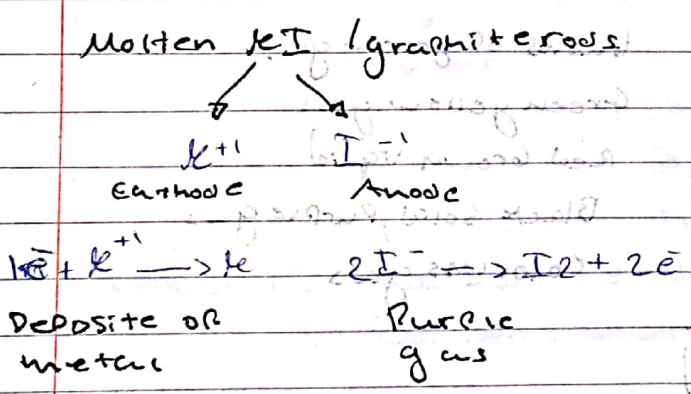 Molten KI / graphite rods
K+1 I-1
Cathode Anode
1ē + K+1 → K 2I- → I2 + 2ē
Deposite of Purple
metal gas